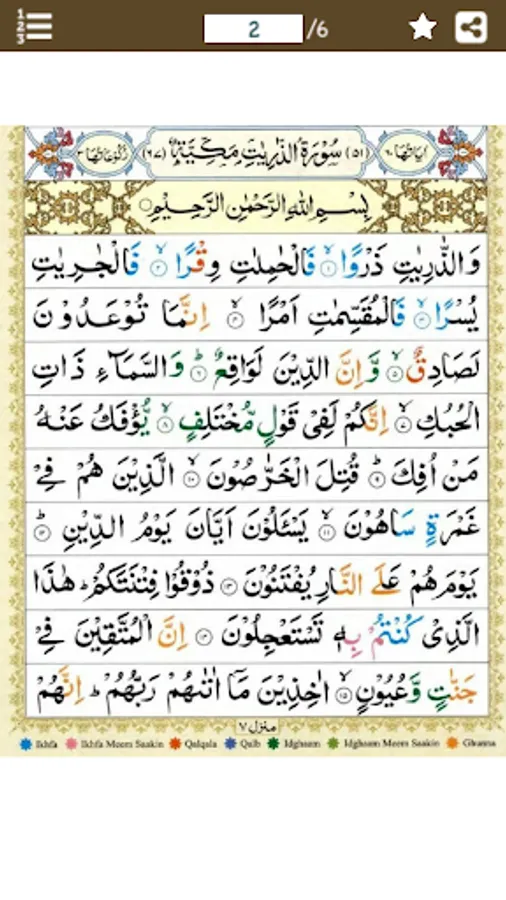 2 /6
اٰیاتُهَا ٦٠ (٥١) سُوْرَةُ الذّٰرِیٰتِ مَكِّیَّةٌ (٦٧) رُكُوْعَاتُهَا ٣
بِسْمِ اللّٰهِ الرَّحْمٰنِ الرَّحِیْمِ
وَالذّٰرِیٰتِ ذَرْوًا ۙ﴿١﴾ فَالْحٰمِلٰتِ وِقْرًا ۙ﴿٢﴾ فَالْجٰرِیٰتِ
یُسْرًا ۙ﴿٣﴾ فَالْمُقَسِّمٰتِ اَمْرًا ۙ﴿٤﴾ اِنَّمَا تُوْعَدُوْنَ
لَصَادِقٌ ۙ﴿٥﴾ وَّاِنَّ الدِّیْنَ لَوَاقِعٌ ؕ﴿٦﴾ وَالسَّمَآءِ ذَاتِ
الْحُبُكِ ۙ﴿٧﴾ اِنَّكُمْ لَفِیْ قَوْلٍ مُّخْتَلِفٍ ۙ﴿٨﴾ یُّؤْفَكُ عَنْهُ
مَنْ اُفِكَ ؕ﴿٩﴾ قُتِلَ الْخَرّٰصُوْنَ ۙ﴿١٠﴾ الَّذِیْنَ هُمْ فِیْ
غَمْرَةٍ سَاهُوْنَ ۙ﴿١١﴾ یَسْـَٔلُوْنَ اَیَّانَ یَوْمُ الدِّیْنِ ؕ﴿١٢﴾
یَوْمَ هُمْ عَلَى النَّارِ یُفْتَنُوْنَ ﴿١٣﴾ ذُوْقُوْا فِتْنَتَكُمْ ؕ هٰذَا
الَّذِیْ كُنْتُمْ بِهٖ تَسْتَعْجِلُوْنَ ﴿١٤﴾ اِنَّ الْمُتَّقِیْنَ فِیْ
جَنّٰتٍ وَّعُیُوْنٍ ۙ﴿١٥﴾ اٰخِذِیْنَ مَاۤ اٰتٰىهُمْ رَبُّهُمْ ؕ اِنَّهُمْ
منزل ٧
Ikhfa Ikhfa Meem Saakin Qalqala Qalb Idghaam Idghaam Meem Saakin Ghunna